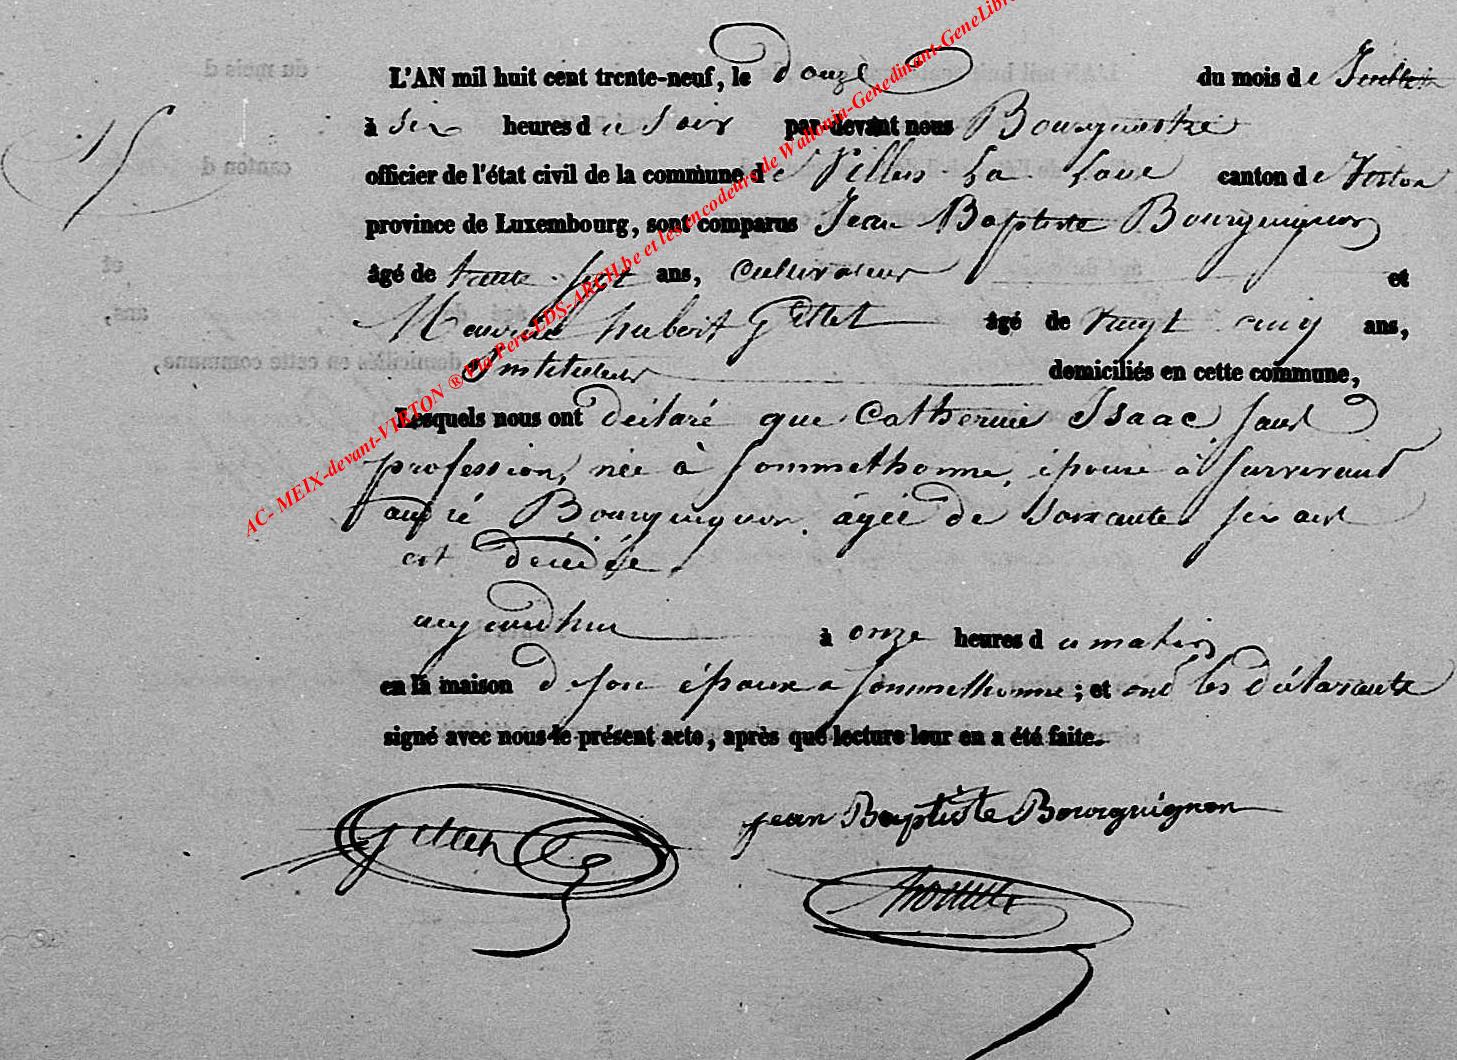 15
L'AN mil huit cent trente-neuf, le douze du mois de Juillet
à six heures du soir par-devant nous Bourguestre
officier de l'état civil de la commune de Villers-La-Loue canton de Virton
province de Luxembourg, sont comparus Jean Baptiste Bourguignon
âgé de trente sept ans, cultivateur et
hubert Gillet âgé de vingt cinq ans,
Instituteur domiciliés en cette commune,
Lesquels nous ont déclaré que Catherine Isaac sans
profession, née à Sommethonne, épouse à
Bourguignon, âgée de soixante six ans
est décédée
aujourdhui à onze heures du matin
en la maison de son époux a Sommethonne; et ont les déclarants
signé avec nous le présent acte, après que lecture leur en a été faite.
Gillet
jean Baptiste Bourguignon
AC- MEIX-devant-VIRTON ® Via Pers-LDS-ARCH.be et les encodeurs de Wallonia-Genedinant-GeneLibr